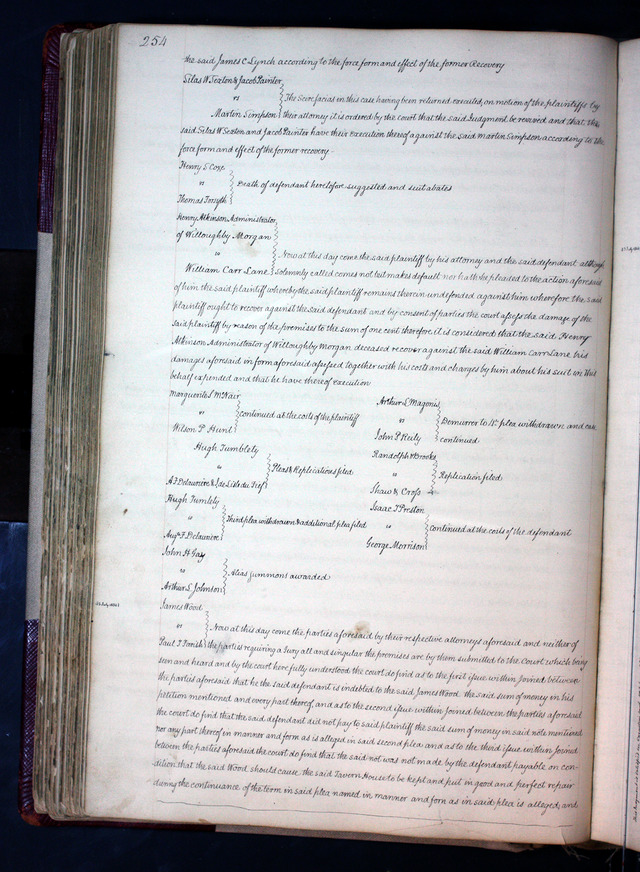 254
the said James C Lynch according to the force form and effect of the former Recovery
Silas W Sexton & Jacob Painter
vs
Marten Simpson
The Scire facias in this case having been returned executed, on motion of the plaintiffs by
their attorney it is ordered by the court that the said Judgment be revived and that the
said Silas W Sexton and Jacob Painter have their execution thereof against the said Marten Simpson according to the
force form and effect of the former recovery
Henry S Coxe
vs
Thomas Forsyth
Death of defendant heretofore suggested and suit abates
Henry Atkinson Administrator
of Willoughby Morgan
vs
William Carr Lane
Now at this day come the said plaintiff by his attorney and the said defendant although
solemnly called comes not but makes default nor hath he pleaded to the action aforesaid
of him the said plaintiff whereby the said plaintiff remains therein undefended against him wherefore the said
plaintiff ought to recover against the said defendant and by consent of parties the court assess the damage of the
said plaintiff by reason of the premises to the sum of one cent therefore it is considered that the said Henry
Atkinson Administrator of Willoughby Morgan deceased recover against the said William Carr Lane his
damages aforesaid in form aforesaid assessed together with his costs and charges by him about his suit in this
behalf expended and that he have thereof execution
Marguerite McNair
vs
Wilson P Hunt
continued at the costs of the plaintiff
Arthur L Magenis
vs
John P Reily
Demurrer to plea withdrawn and case
continued
Hugh Tumblety
vs
A F Delauriere &
Pleas & Replications filed
Randolph & Brooks
vs
Shaw & Cross
Replication filed
Hugh Tumlety
vs
Augs F Delauriere
Third plea withdrawn & additional plea filed
Isaac T Preston
vs
George Morrison
Continued at the costs of the defendant
John H Gay
vs
Arthur L Johnson
Alias summons awarded
James Wood
vs
Paul T
Now at this day come the parties aforesaid by their respective attorneys aforesaid and neither of
the parties requiring a Jury all and singular the premises are by them submitted to the Court which being
seen and heard and by the court here fully understood the court do find as to the first issue within Joined between
the parties aforesaid that he the said defendant is indebted to the said James Wood the said sum of money in his
petition mentioned and every part thereof, and as to the second issue within Joined between the parties aforesaid
the court do find that the said defendant did not pay to said plaintiff the said sum of money in said note mentioned
nor any part thereof in manner and form as is alleged in said second plea and as to the third issue within Joined
between the parties aforesaid the court do find that the said not was not made by the defendant payable on con-
dition that the said Wood should cause the said Tavern House to be kept and put in good and perfect repair
during the continuance of the term in said plea named in manner and form as in said plea is alleged, and